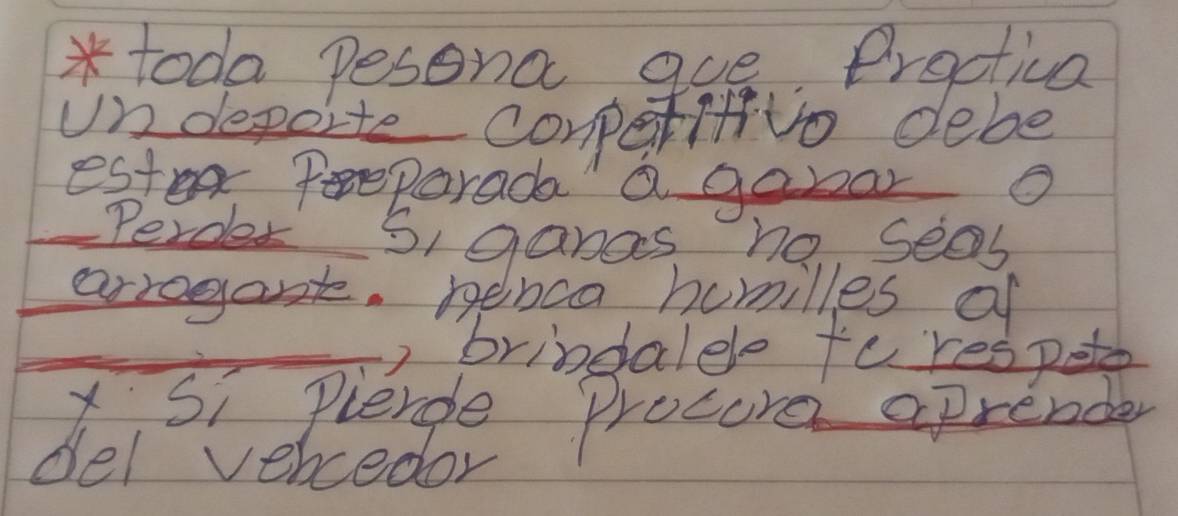 * toda Pesona que Practica
un deporte conpetitivo debe
estar Preparada a ganar o
Perder Si ganas no seas
arrogante. nunca humilles al
, brindale tu respeto
y si Pierde Procura aprender
del vencedor